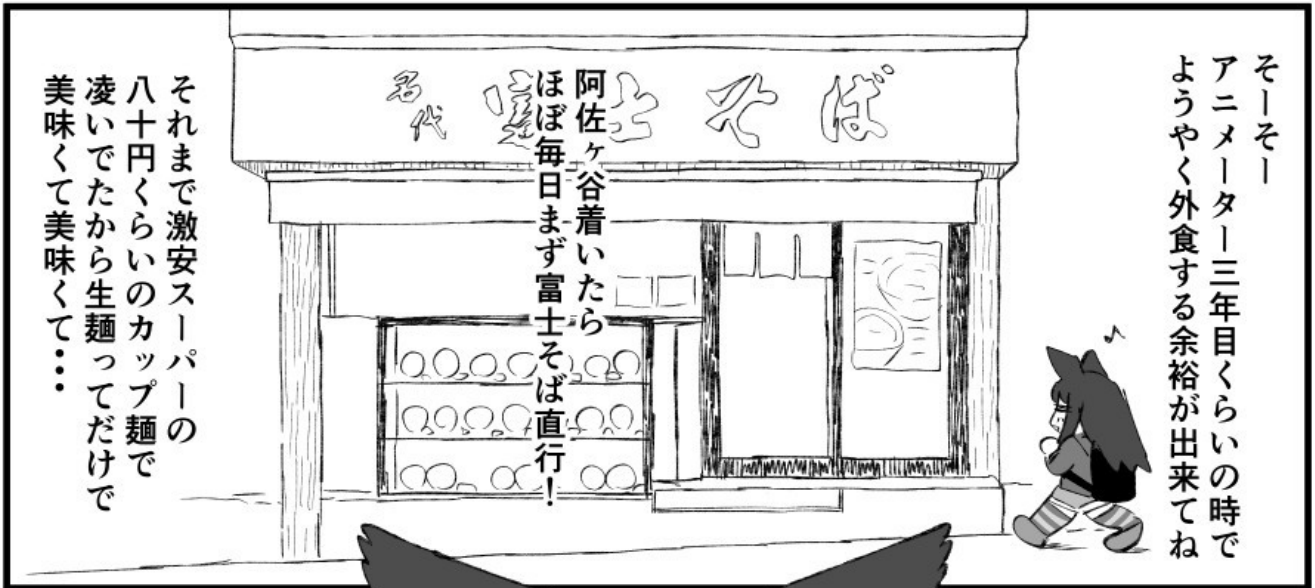 そーそー
アニメーター三年目くらいの時で
ようやく外食する余裕が出来てね
名代 富士そば
阿佐ヶ谷着いたら
ほぼ毎日まず富士そば直行！
それまで激安スーパーの
八十円くらいのカップ麺で
凌いでたから生麺ってだけで
美味くて美味くて・・・